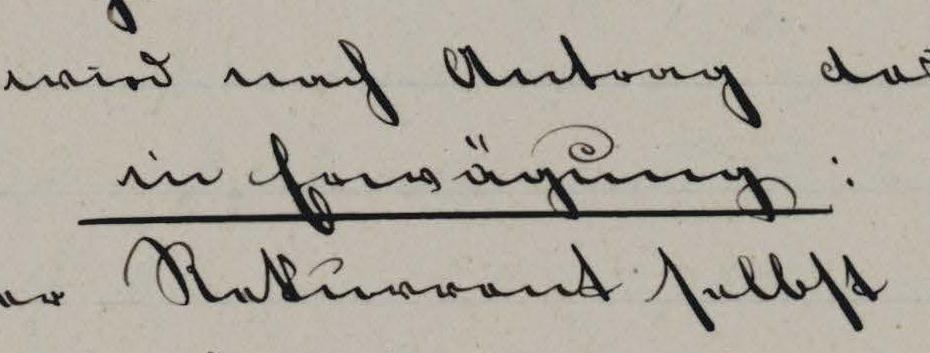 wird nach Antrag des
in Erwägung:
er Rekurrent selbst